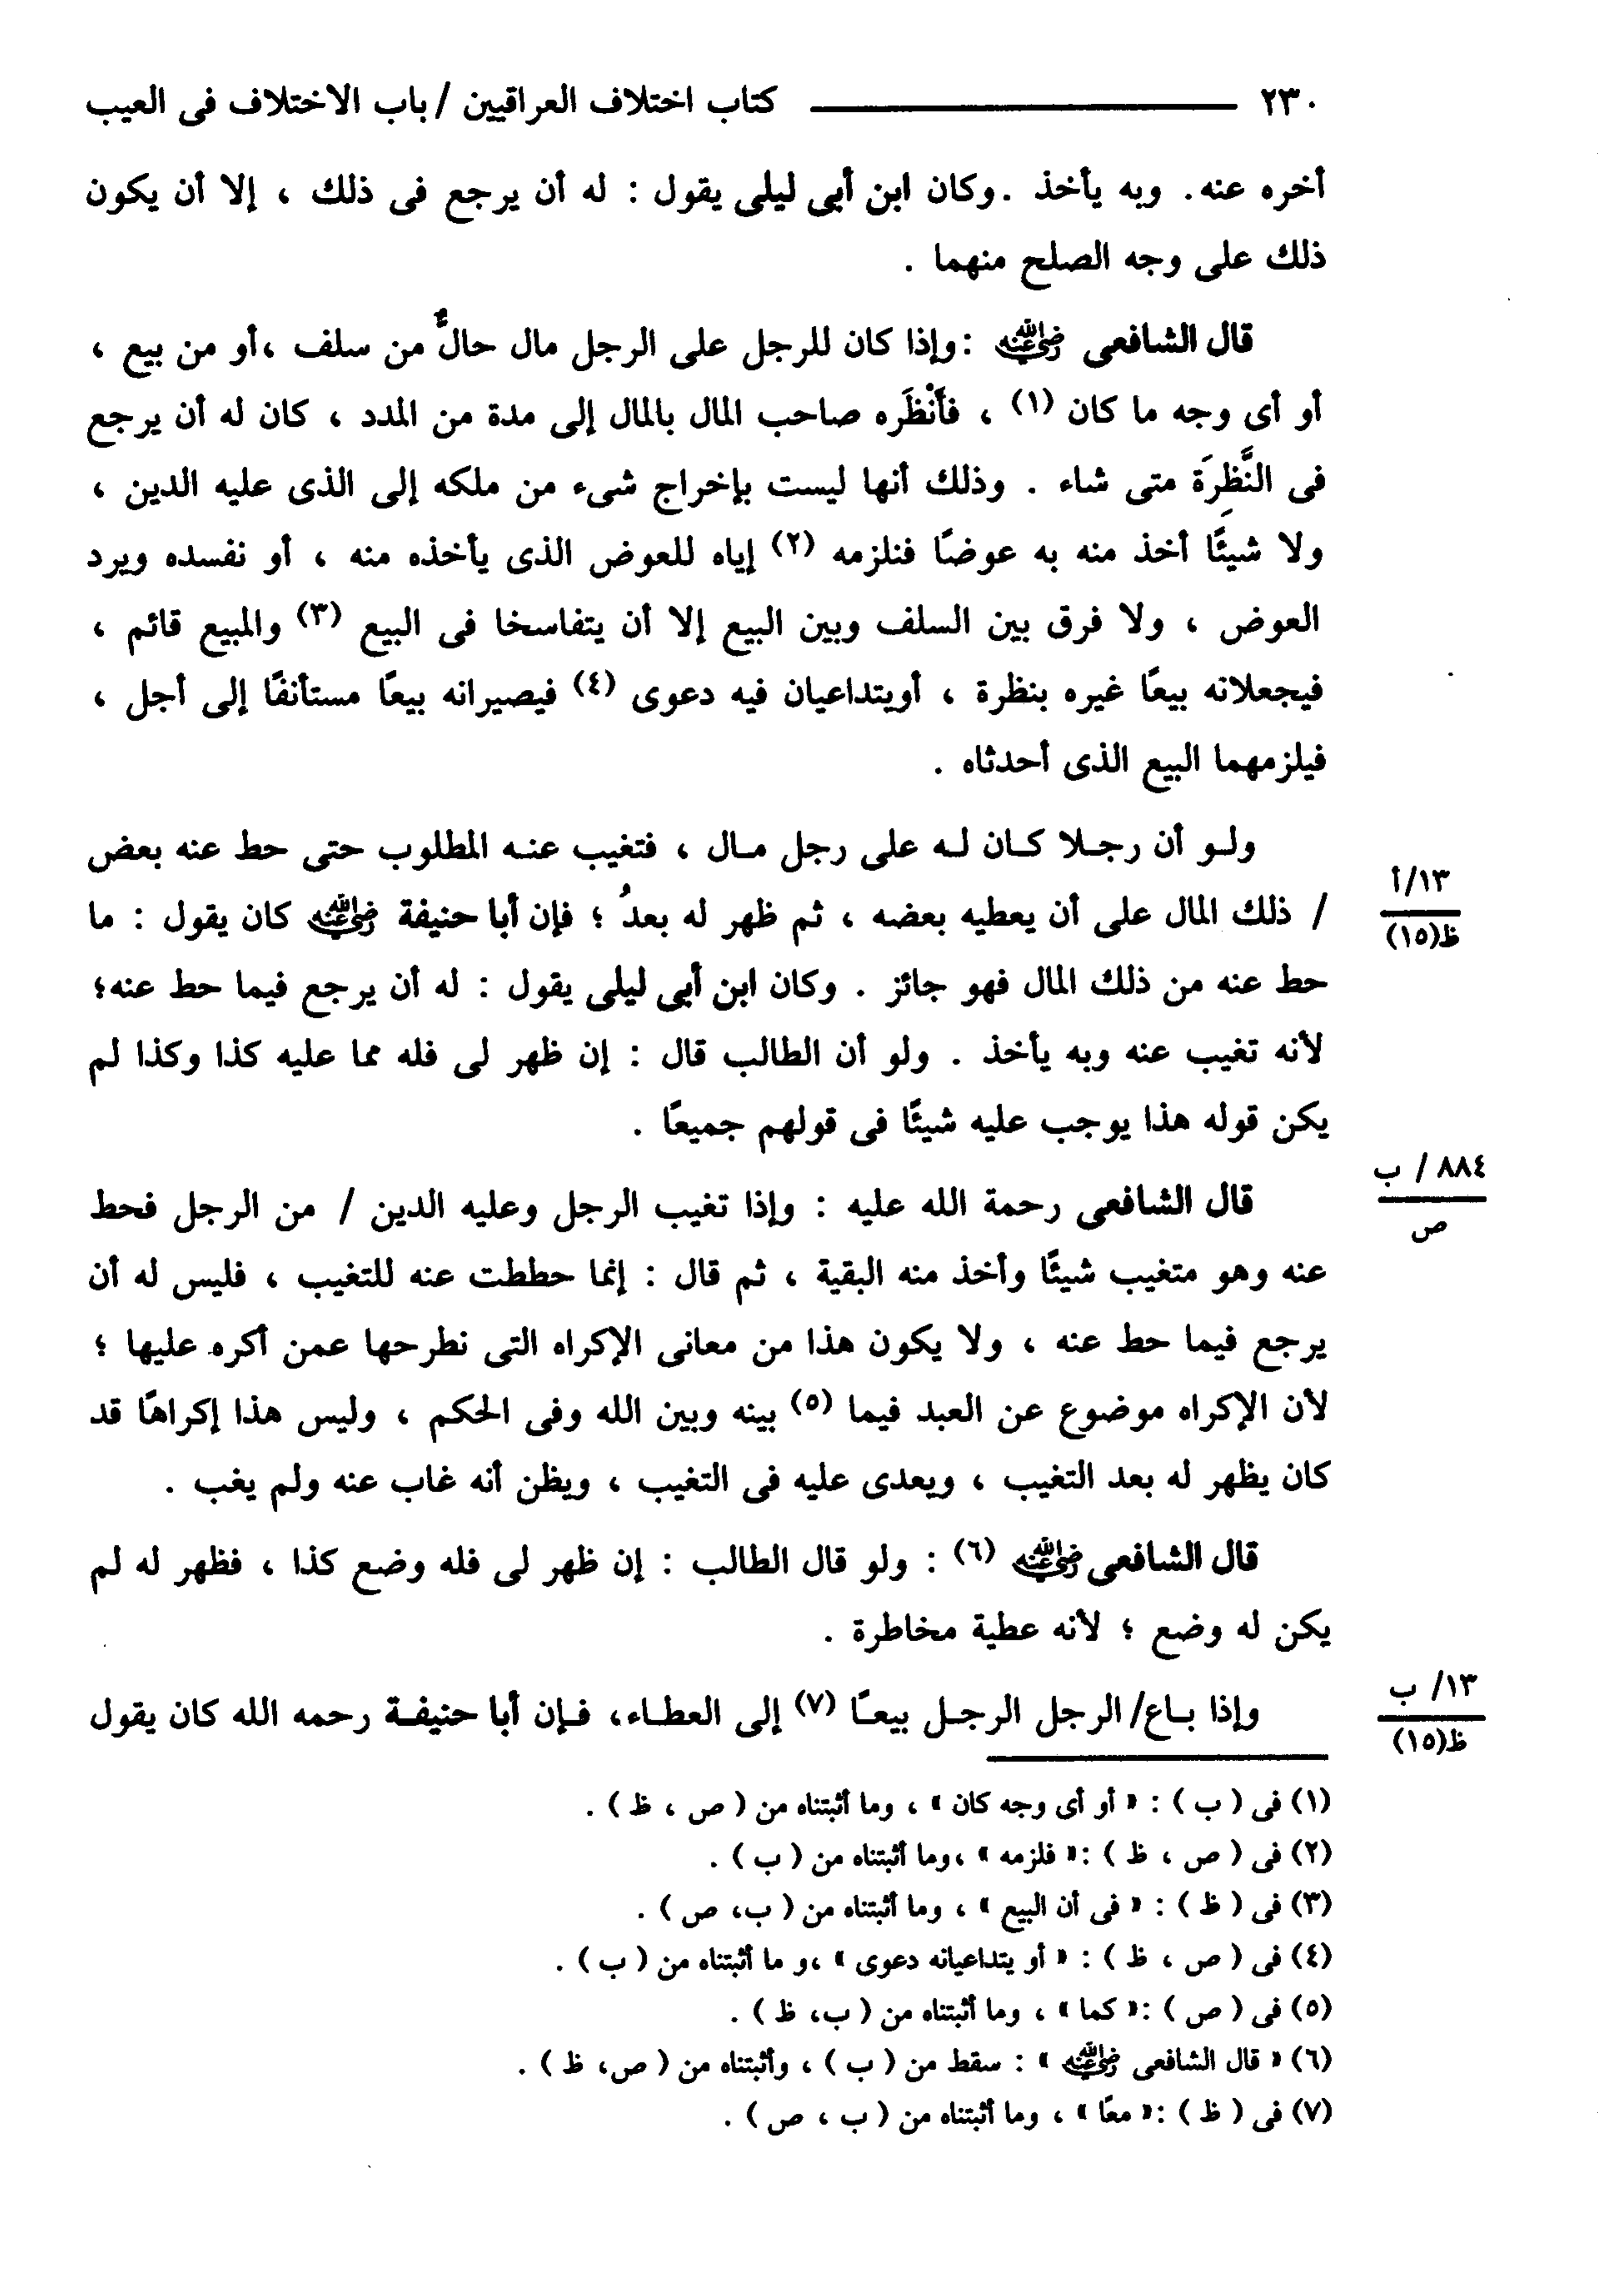 ٢٣٠ كتاب اختلاف العراقيين / باب الاختلاف فى العيب
أخره عنه. وبه يأخذ .وكان ابن أبى ليلى يقول : له أن يرجع فى ذلك ، إلا أن يكون
ذلك على وجه الصلح منهما .
قال الشافعى رضي الله عنه :وإذا كان للرجل على الرجل مال حالٌّ من سلف ،أو من بيع ،
أو أى وجه ما كان (١) ، فأَنْظَره صاحب المال بالمال إلى مدة من المدد ، كان له أن يرجع
فى النَّظِرَة متى شاء . وذلك أنها ليست بإخراج شىء من ملكه إلى الذى عليه الدين ،
ولا شيئًا أخذ منه به عوضًا فنلزمه (٢) إياه للعوض الذى يأخذه منه ، أو نفسده ويرد
العوض ، ولا فرق بين السلف وبين البيع إلا أن يتفاسخا فى البيع (٣) والمبيع قائم ،
فيجعلانه بيعًا غيره بنظرة ، أويتداعيان فيه دعوى (٤) فيصيرانه بيعًا مستأنفًا إلى أجل ،
فيلزمهما البيع الذى أحدثاه .
ولو أن رجلا كان له على رجل مال ، فتغيب عنه المطلوب حتى حط عنه بعض
١٣/أ
ظ(١٥)
/ ذلك المال على أن يعطيه بعضه ، ثم ظهر له بعدُ ؛ فإن أبا حنيفة رضي الله عنه كان يقول : ما
حط عنه من ذلك المال فهو جائز . وكان ابن أبى ليلى يقول : له أن يرجع فيما حط عنه؛
لأنه تغيب عنه وبه يأخذ . ولو أن الطالب قال : إن ظهر لى فله مما عليه كذا وكذا لم
يكن قوله هذا يوجب عليه شيئًا فى قولهم جميعًا .
٨٨٤ / ب
ص
قال الشافعى رحمة الله عليه : وإذا تغيب الرجل وعليه الدين / من الرجل فحط
عنه وهو متغيب شيئًا وأخذ منه البقية ، ثم قال : إنما حططت عنه للتغيب ، فليس له أن
يرجع فيما حط عنه ، ولا يكون هذا من معانى الإكراه التى نطرحها عمن أكره عليها ؛
لأن الإكراه موضوع عن العبد فيما (٥) بينه وبين الله وفى الحكم ، وليس هذا إكراهًا قد
كان يظهر له بعد التغيب ، ويعدى عليه فى التغيب ، ويظن أنه غاب عنه ولم يغب .
قال الشافعى رضي الله عنه (٦) : ولو قال الطالب : إن ظهر لى فله وضع كذا ، فظهر له لم
يكن له وضع ؛ لأنه عطية مخاطرة .
١٣/ ب
ظ(١٥)
وإذا باع/ الرجل الرجل بيعًا (٧) إلى العطاء، فإن أبا حنيفة رحمه الله كان يقول
(١) فى ( ب ) : « أو أى وجه كان » ، وما أثبتناه من ( ص ، ظ ) .
(٢) فى ( ص ، ظ ) :« فلزمه » ،وما أثبتناه من ( ب ) .
(٣) فى ( ظ ) : « فى أن البيع » ، وما أثبتناه من ( ب، ص ) .
(٤) فى ( ص ، ظ ) : « أو يتداعيانه دعوى » ،و ما أثبتناه من ( ب ) .
(٥) فى ( ص ) :« كما » ، وما أثبتناه من ( ب، ظ ) .
(٦) « قال الشافعى رضي الله عنه » : سقط من ( ب ) ، وأثبتناه من ( ص، ظ ) .
(٧) فى ( ظ ) :« معًا » ، وما أثبتناه من ( ب ، ص ) .